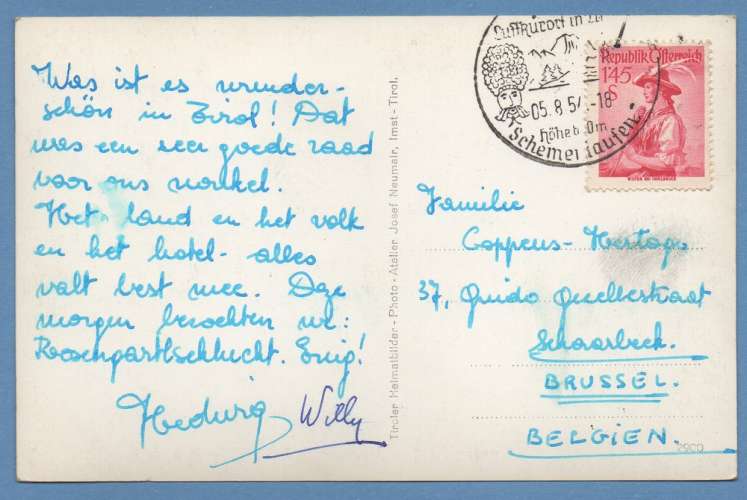 Was ist es wunder-
schön in Tirol! Dat
was een zeer goede raad
voor ons nonkel.
Het land en het volk
en het hotel - alles
valt best mee. Deze
morgen bezochten we:
Rosengartlschlucht. Enig!
Hedwig Willy
Tiroler Heimatbilder - Photo - Atelier Josef Neumair, Imst - Tirol.
Luftkurort in
05.8.5 -18
Höhe
Schemenlaufen
Republik Österreich
1·45
S
Familie
Coppens - Hertogs
37, Guido Gezellestraat
Schaarbeek.
BRUSSEL.
BELGIEN.